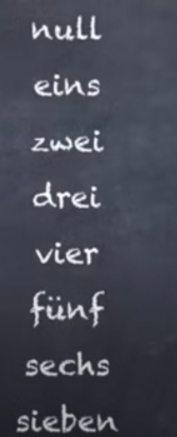 null
eins
zwei
drei
vier
fünf
sechs
sieben